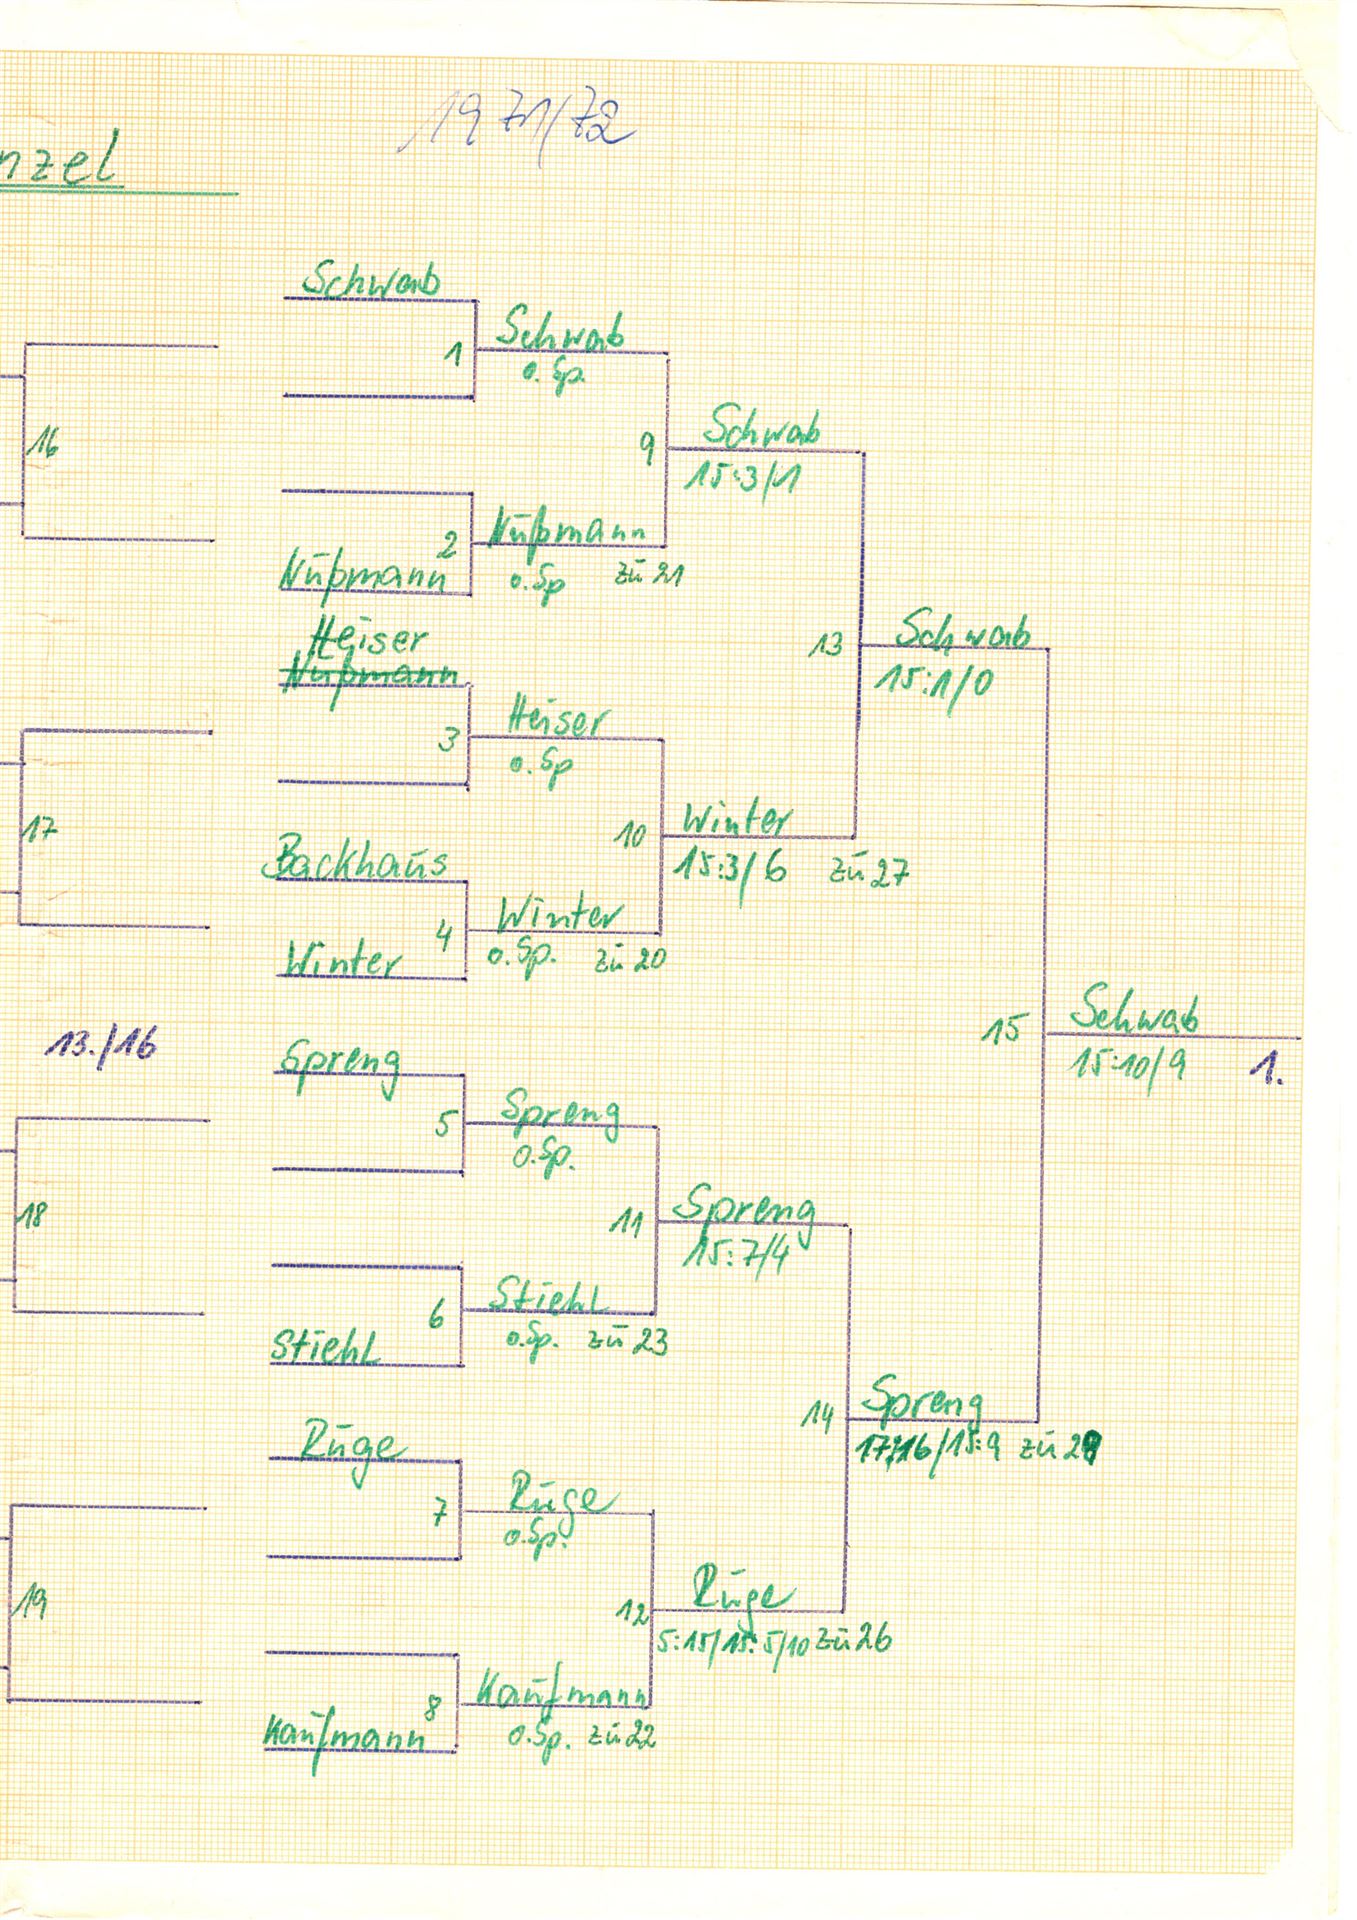 1971/72
nzel
Schwab
1 Schwab
o. Sp.
16
9 Schwab
15:3/1
2 Nußmann
Nußmann o.Sp zu 21
Heiser
13 Schwab
Nußmann
15:1/0
3 Heiser
o.Sp
17
10 Winter
Backhaus 15:3/6 zu 27
4 Winter
Winter o.Sp. zu 20
15 Schwab
13./16
Spreng 15:10/9 1.
5 Spreng
o.Sp.
18
11 Spreng
15:7/4
6 Stiehl
Stiehl o.Sp. zu 23
14 Spreng
Rüge 17:16/15:9 zu
7 Rüge
o.Sp.
19
12 Rüge
5:15/15:5/10 zu 26
8 Kaufmann
Kaufmann o.Sp. zu 22